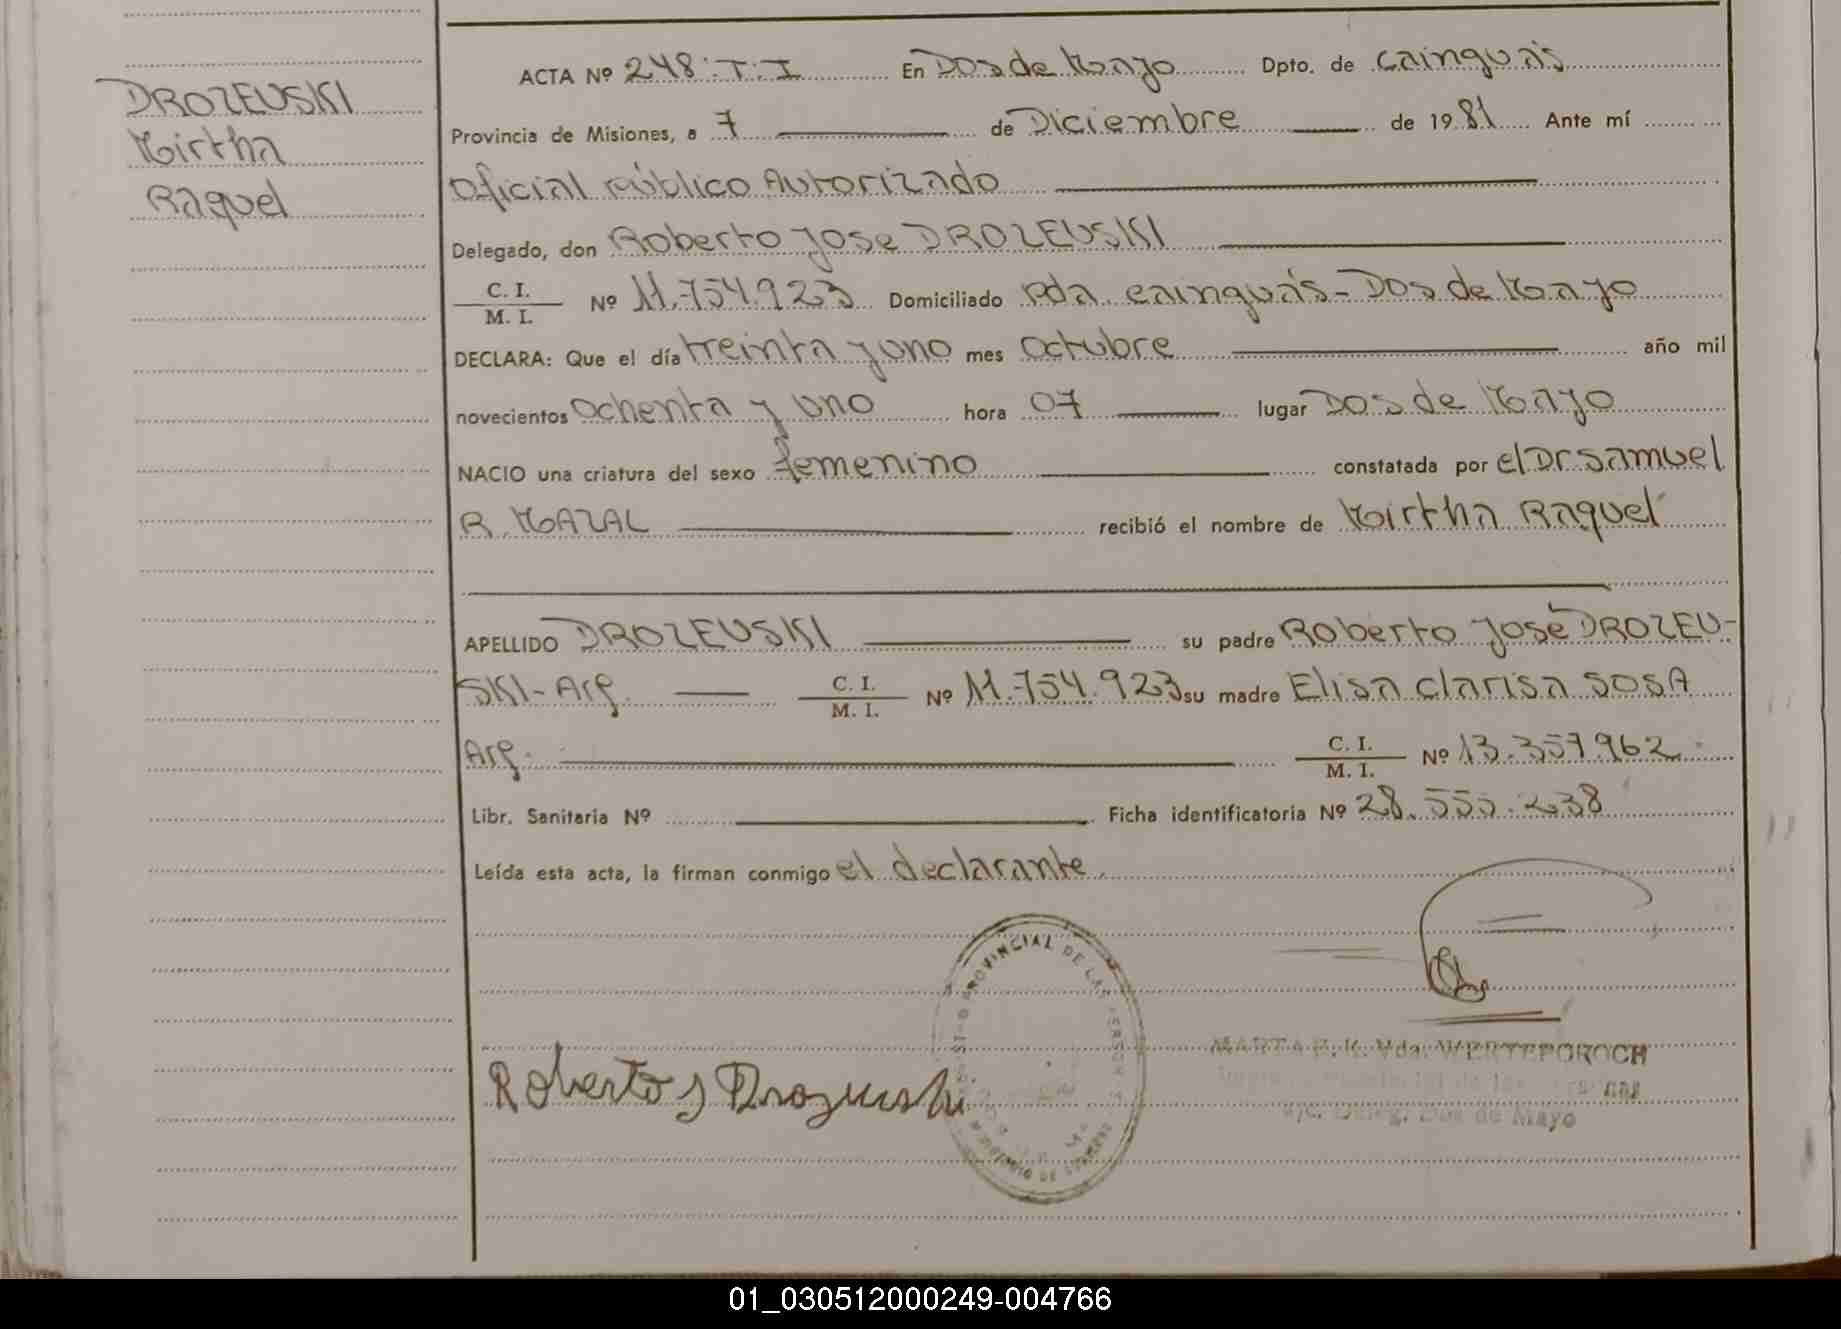 DROZEUSKI
Mirtha
Raquel
ACTA Nº 248-T-I En Dos de Mayo Dpto. de Cainguás
Provincia de Misiones, a 7 de Diciembre de 1981 Ante mí
Oficial público Autorizado
Delegado, don Roberto Jose DROZEUSKI
C. I.
M. I. Nº 11.754.923 Domiciliado Pda Cainguás - Dos de Mayo
DECLARA: Que el día treinta y uno mes Octubre año mil
novecientos Ochenta y uno hora 07 lugar Dos de Mayo
NACIO una criatura del sexo femenino constatada por el Dr Samuel
R. MAZAL recibió el nombre de Mirtha Raquel
APELLIDO DROZEUSKI su padre Roberto José DROZEU-
SKI - Arg. C. I.
M. I. Nº 11.754.923 su madre Elisa Clarisa SOSA
Arg. C. I.
M. I. Nº 13.357.962
Libr. Sanitaria Nº Ficha identificatoria Nº 28.555.238
Leída esta acta, la firman conmigo el declarante.
PROVINCIAL DE LAS
Roberto J Drozeuski
MARTA E. K. Vda. WERTEPOROCH
Deleg. Dos de Mayo
01_030512000249-004766